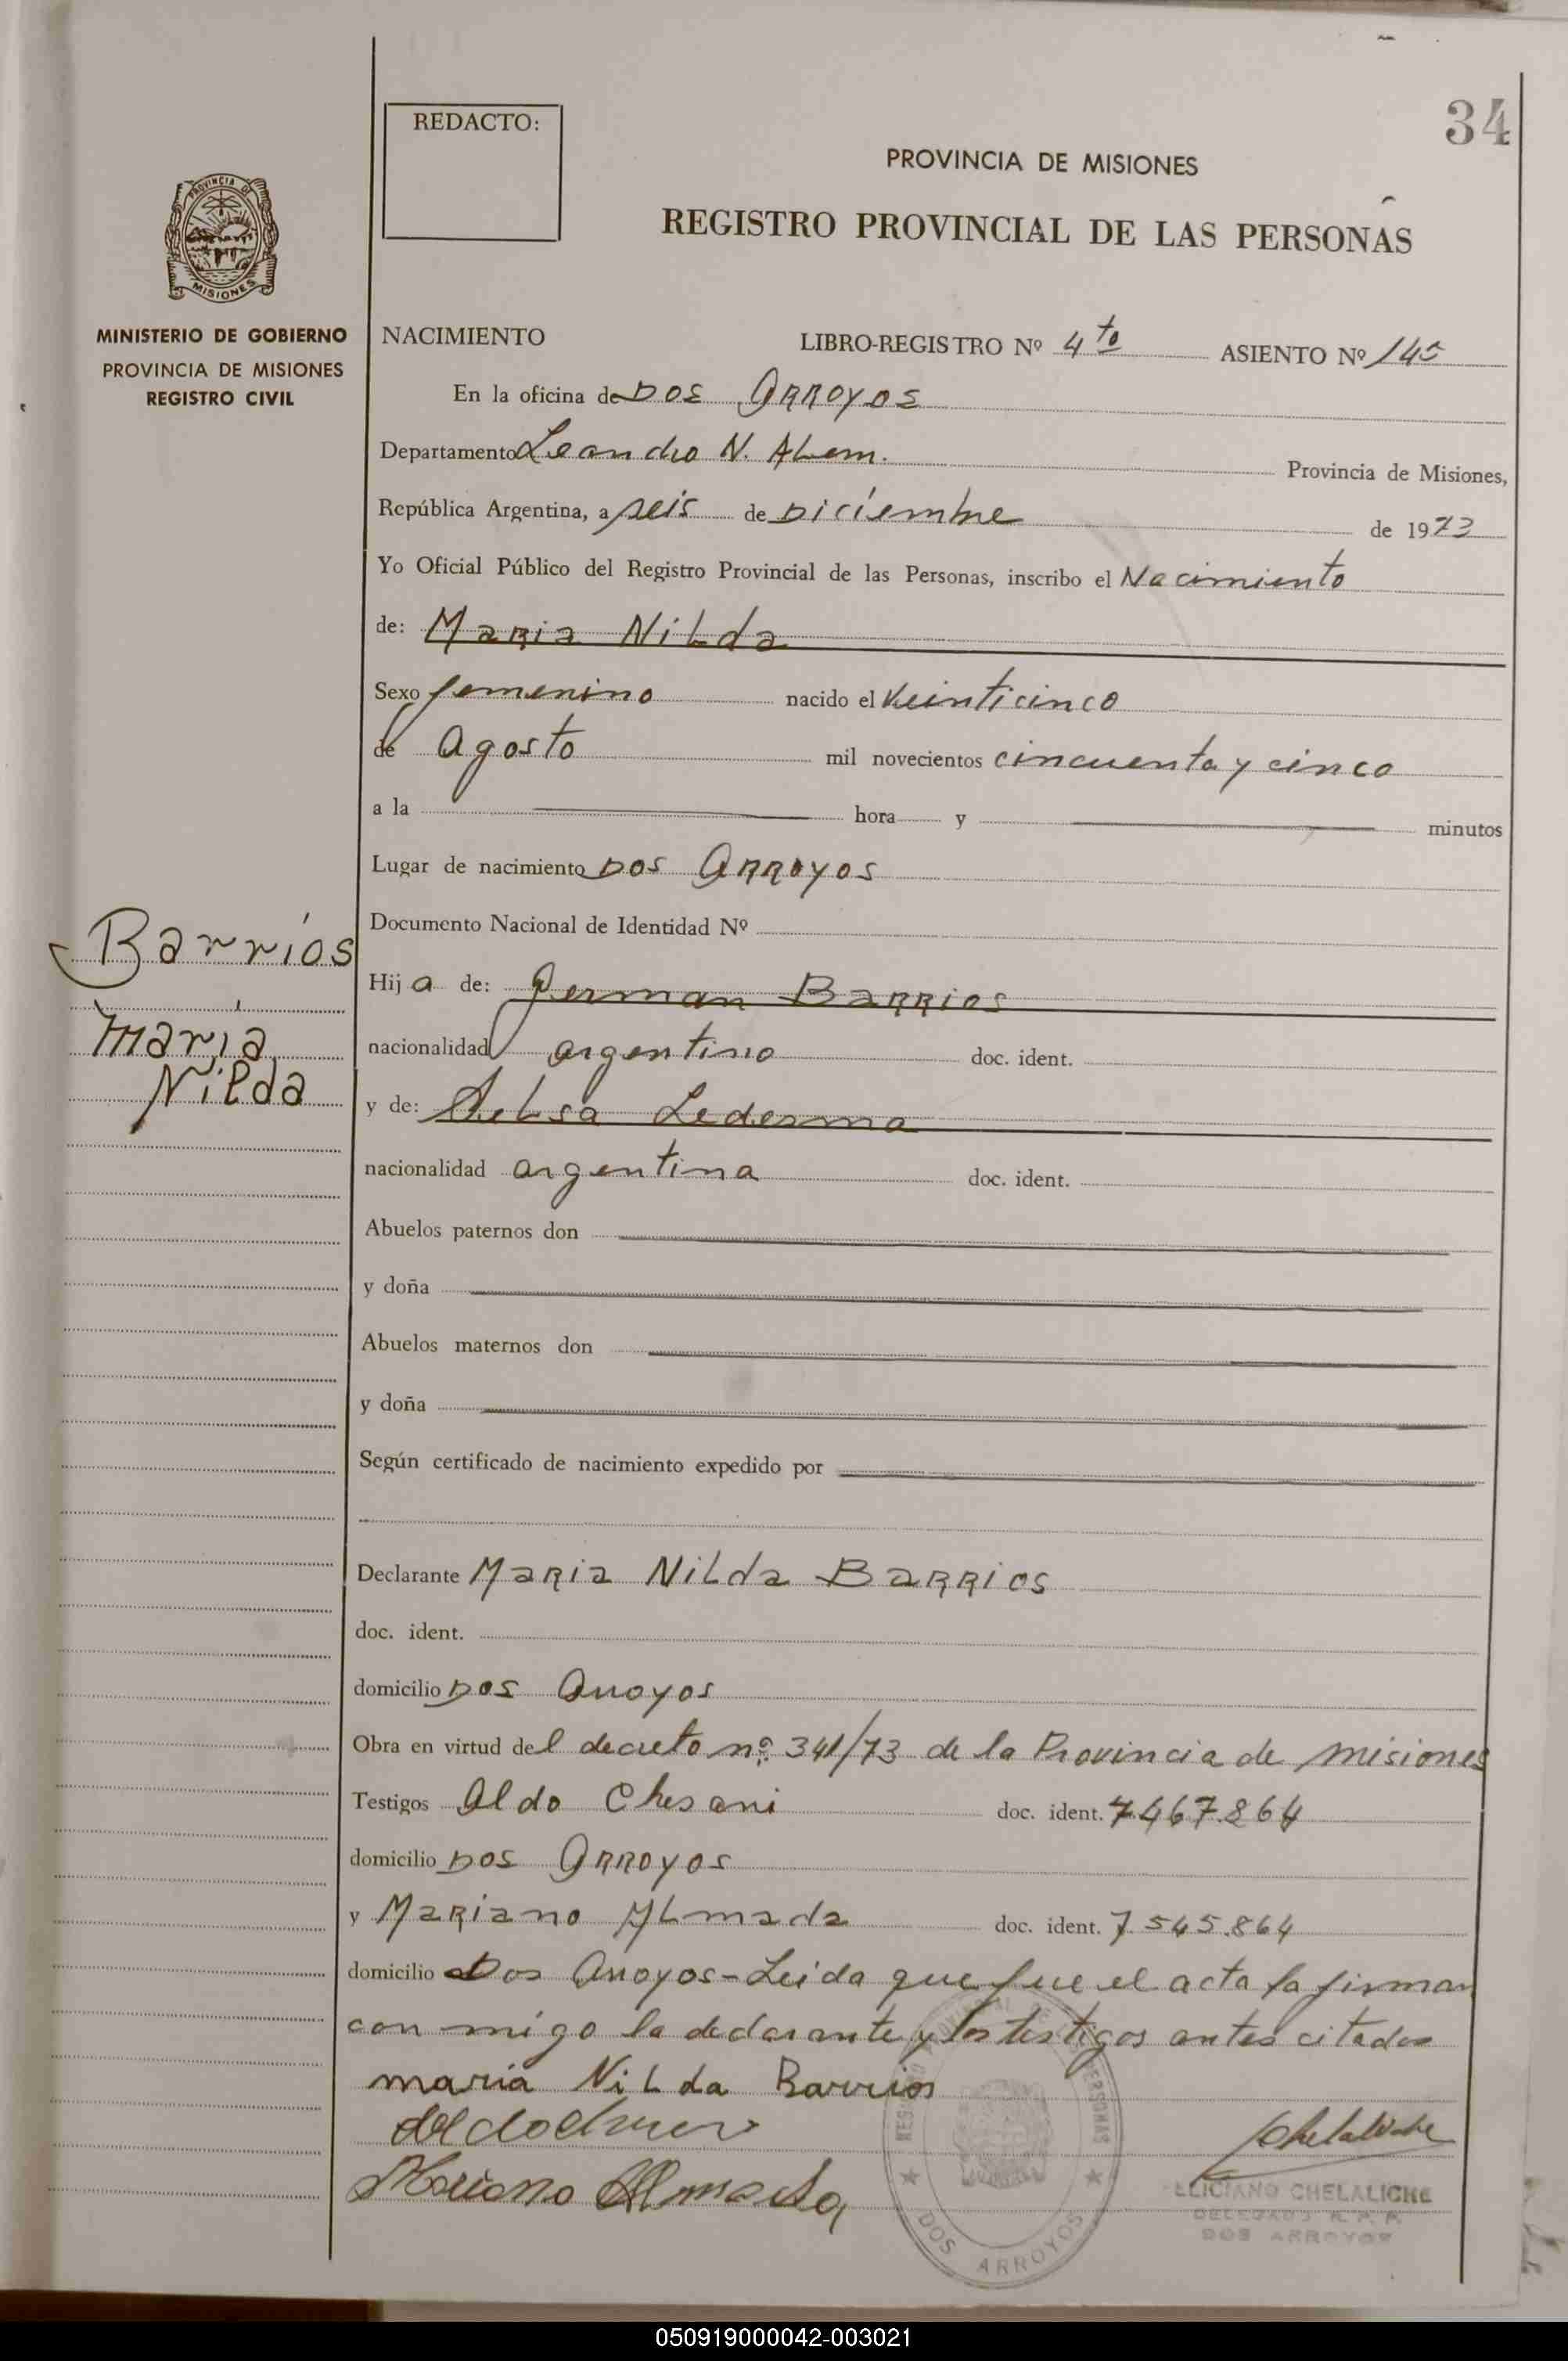 34
REDACTO:
PROVINCIA DE MISIONES
REGISTRO PROVINCIAL DE LAS PERSONAS
PROVINCIA DE
MISIONES
MINISTERIO DE GOBIERNO
PROVINCIA DE MISIONES
REGISTRO CIVIL
NACIMIENTO LIBRO-REGISTRO Nº 4to ASIENTO Nº 145
En la oficina de DOS ARROYOS
Departamento Leandro N. ALem. Provincia de Misiones,
República Argentina, a seis de Diciembre de 1973
Yo Oficial Público del Registro Provincial de las Personas, inscribo el Nacimiento
de: Maria NiLda
Sexo femenino nacido el Veinticinco
de Agosto mil novecientos cincuenta y cinco
a la hora y minutos
Lugar de nacimiento DOS ARROYOS
Documento Nacional de Identidad Nº
Barrios
María
Nilda
Hija de: German BARRIOS
nacionalidad argentino doc. ident.
y de: Ledesma
nacionalidad argentina doc. ident.
Abuelos paternos don
y doña
Abuelos maternos don
y doña
Según certificado de nacimiento expedido por
Declarante Maria NiLda BARRIOS
doc. ident.
domicilio DOS Arroyos
Obra en virtud del decreto nº 341/73 de la Provincia de misiones
Testigos Aldo Chesani doc. ident. 7.467.864
domicilio DOS ARROYOS
y Mariano ALmada doc. ident. 7.545.864
domicilio Dos Arroyos-Leida que fue el acta la firman
con migo la declarante y los testigos antes citados
maria NiLda Barrios
Mariano Almada
DOS ARROYOS
ELICIANO CHELALICHE
DELEGADO R. P. P.
DOS ARROYOS
050919000042-003021